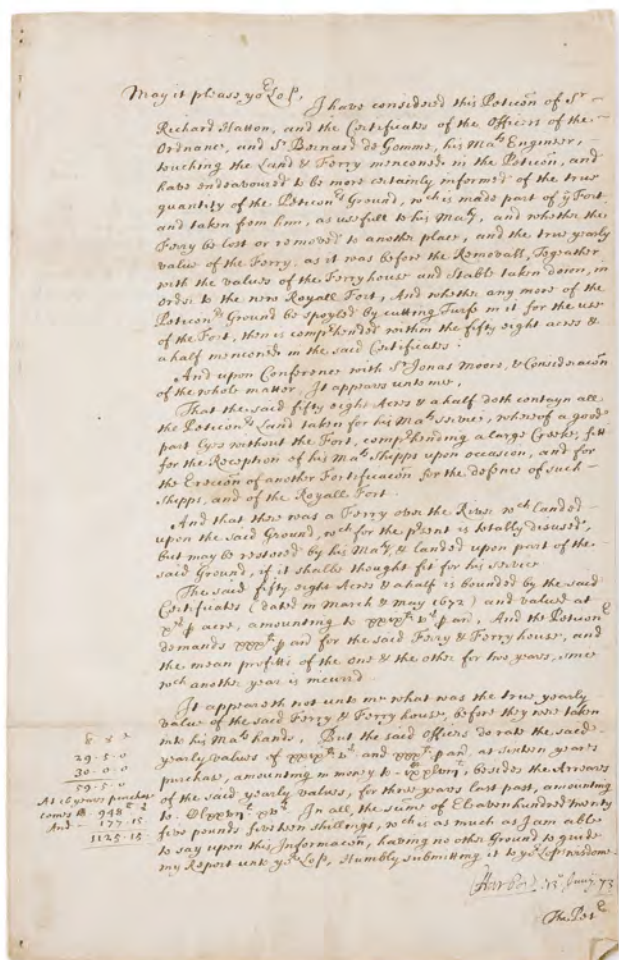 May it please yor Lopp,
I have considered this Peticõn of Sr
Richard Hatton, and the Certificates of the Officers of the
Ordnance, and Sr Bernard de Gomme, his Mats Engineer,
touching the Land & Ferry menconed in the Peticõn, and
have endeavoured to be more certainly informed of the true
quantity of the Peticonrs Ground, wch is made part of ye Fort
and taken from him, as usefull to his Maty, and whether the
Ferry be lost or removed to another place, and the true yearly
value of the Ferry, as it was before the Removall, Togeather
with the values of the Ferryhouse and Stable taken down, in
order to the new Royall Fort, And whether any more of the
Peticonrs Ground be spoyled by cutting Turfs in it for the use
of the Fort, then is comprhended within the fifty eight acres &
a half menconed in the said Certificates.
And upon Conference with Sr Jonas Moore, & Consideracõn
of the whole matter, It appears unto me,
That the said fifty eight Acres & a half doth contayn all
the Peticonrs Land taken for his Mats service, whereof a good
part lyes without the Fort, comprhending a large Creeke, fitt
for the Reception of his Mats Shipps upon occasion, and for
the Erecõn of another Fortificacõn for the defence of such
Shipps, and of the Royall Fort.
And that there was a Ferry over the River wch landed
upon the said Ground, wch for the prsent is totally disused,
but may be restored by his Maty, & landed upon part of the
said Ground, if it shalbe thought fit for his service
The said fifty eight Acres & a half is bounded by the said
Certificates (dated in March & May 1672) and valued at
xs p acre, amounting to xxixli vs p an, And the Peticonr
demands xxxli p an for the said Ferry & Ferryhouse, and
the mean profitts of the one & the other for two years, since
wch another year is incurrd.
It appeareth not unto me what was the true yearly
value of the said Ferry & Ferry house, before they were taken
into his Mats hands. But the said Officers do rate the said
yearly values of xxixli vs and xxxli p an, at sixteen years
purchase, amounting in money to ixcxlviijli, besides the Arreares
of the said yearly values, for three years last past, amounting
to Clxxvijli xvs. In all, the summe of Eleaven hundred twenty
five pounds fifteen shillings, wch is as much as I am able
to say upon this Informacõn, having no other Ground to guide
my Report unto yor Lopp, Humbly submitting it to yor Lopps wisdome
29 - 5 - 0
30 - 0 - 0
59 - 5 - 0
At 16 years purchase
comes to 948
And - 177 - 15
1125 - 15
13o Junij 73
The Petr